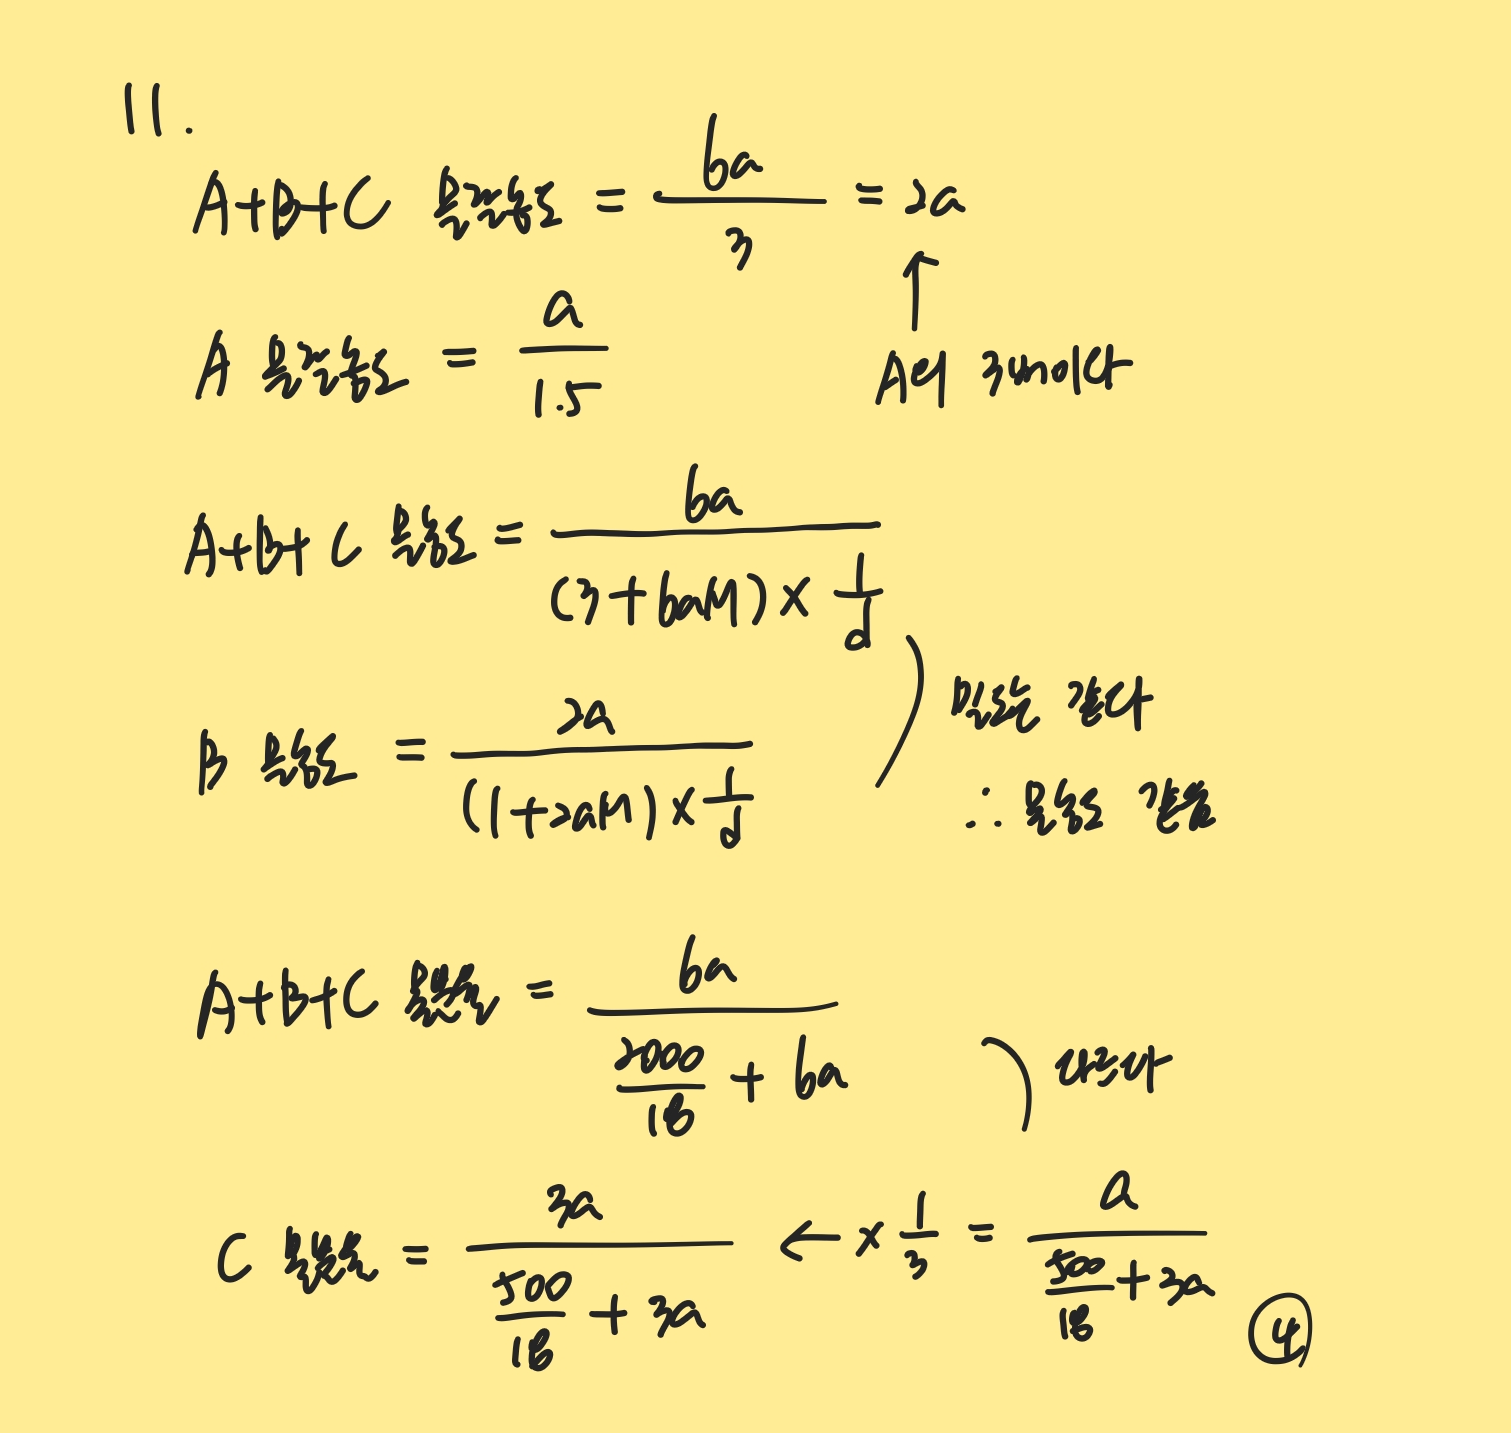 11.
A+B+C 몰랄농도 = 6a/3 = 2a
↑
A의 3배이다
A 몰랄농도 = a/1.5
A+B+C 몰농도 = 6a/((3+6aM)×1/d)
밀도는 같다
B 몰농도 = 2a/((1+2aM)×1/d)
∴ 몰농도 같음
A+B+C 몰분율 = 6a/(2000/18 + 6a)
다르다
C 몰분율 = 3a/(500/18 + 3a) ← ×1/3 = a/(500/18 + 3a)
④